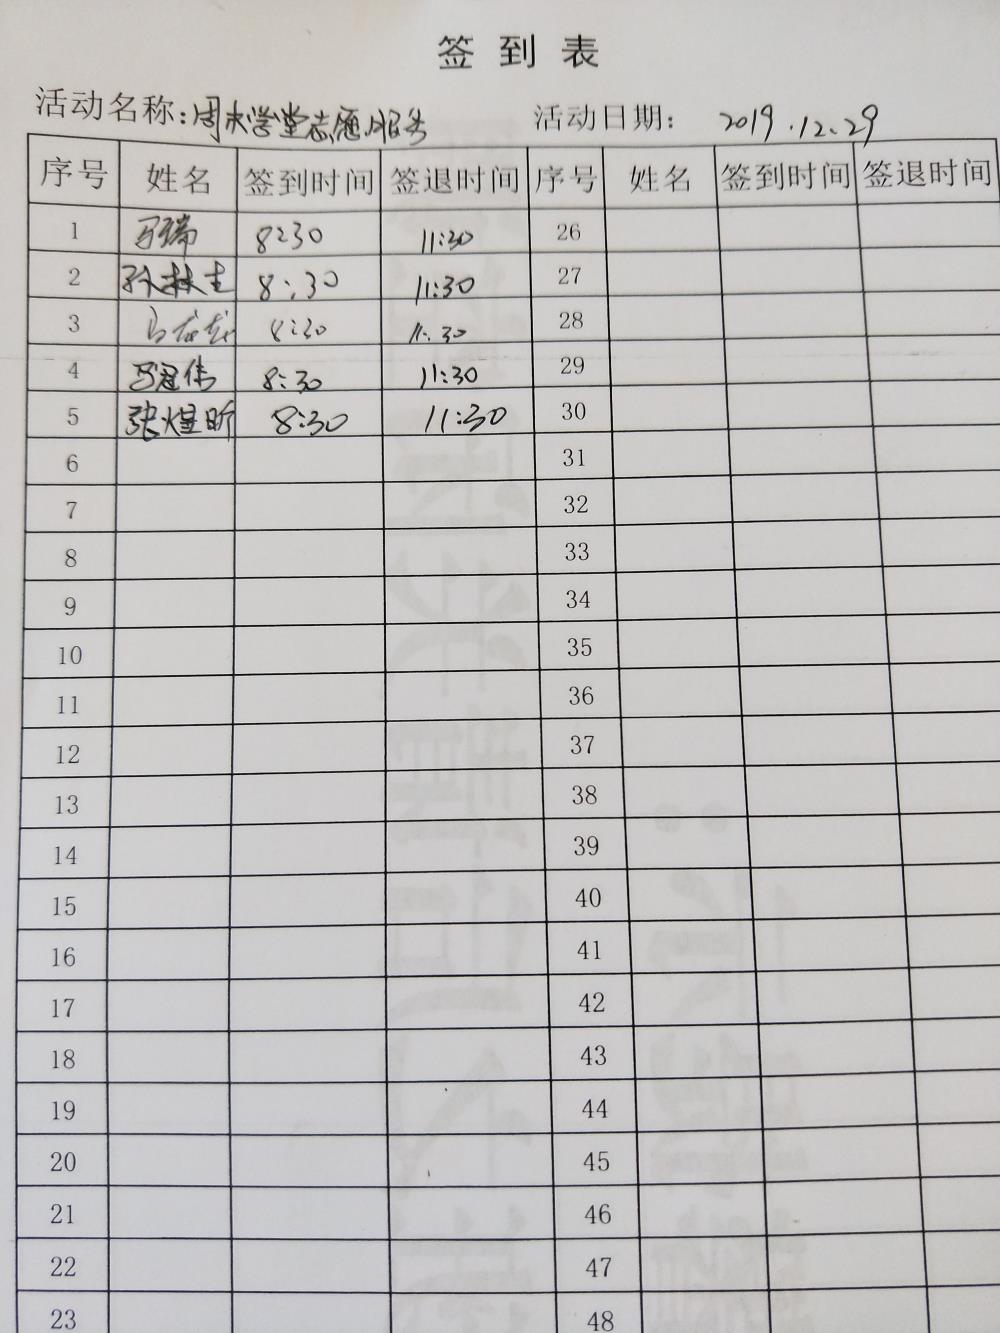 签到表
活动名称：周末学堂志愿服务 活动日期： 2019.12.29
序号 姓名 签到时间 签退时间 序号 姓名 签到时间 签退时间
1 马瑞 8:30 11:30 26
2 孙林生 8:30 11:30 27
3 8:30 11:30 28
4 马冠伟 8:30 11:30 29
5 张煜昕 8:30 11:30 30
6 31
7 32
8 33
9 34
10 35
11 36
12 37
13 38
14 39
15 40
16 41
17 42
18 43
19 44
20 45
21 46
22 47
23 48